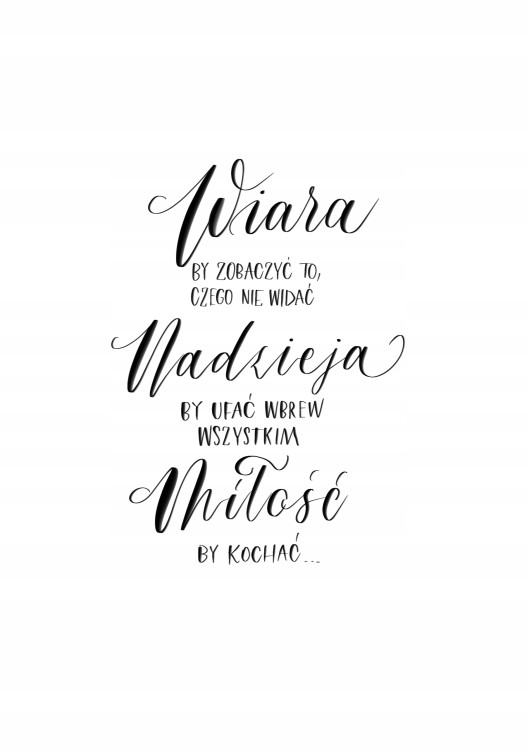 Wiara
BY ZOBACZYĆ TO,
CZEGO NIE WIDAĆ
Nadzieja
BY UFAĆ WBREW
WSZYSTKIM
Miłość
BY KOCHAĆ...